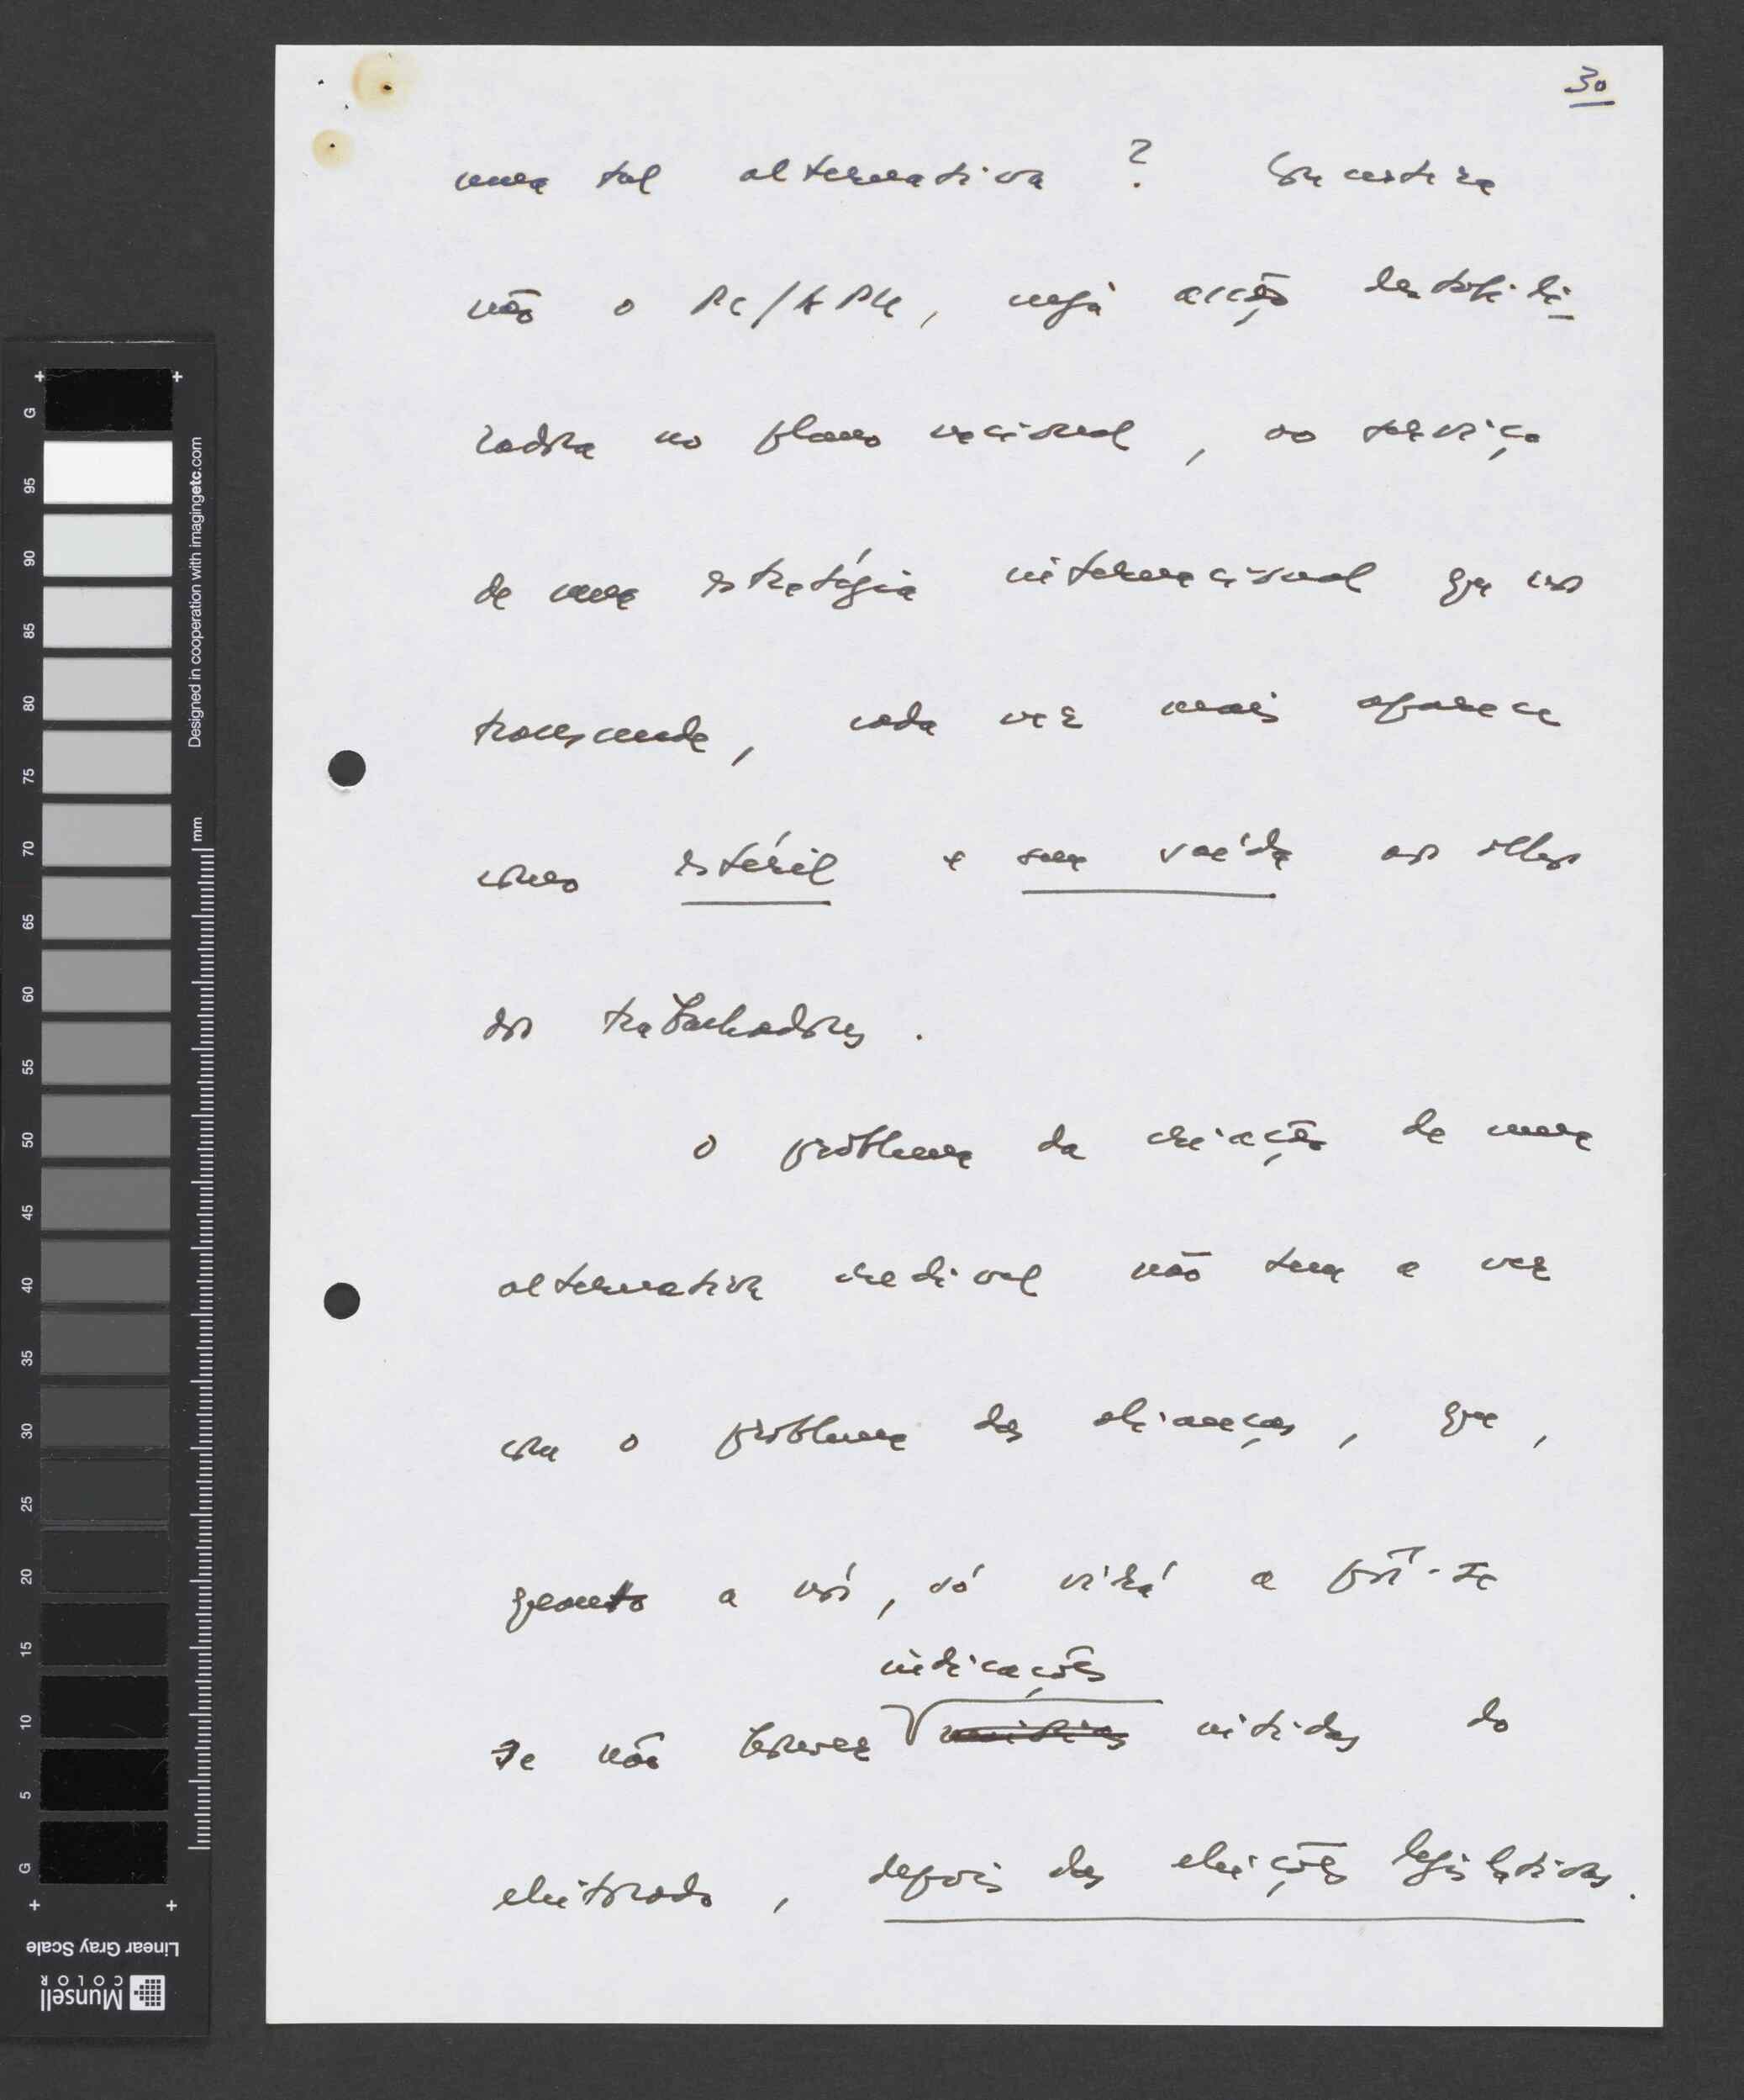 30
uma tal alternativa ? Com certeza
não o PC/APU, cuja acção destabili
zadora no plano nacional, ao serviço
de uma estratégia internacional que nos
transcende, cada vez mais aparece
como estéril e sem saída aos olhos
dos trabalhadores.
O problema da criação de uma
alternativa credível não tem a ver
com o problema das alianças, que,
quanto a nós, só virá a pôr-se
indicações
se não houver nítidas do
eleitorado, depois das eleições legislativas.
G
95
90
85
80
75
70
65
60
55
50
45
40
35
30
25
20
15
10
5
G
mm
Designed in cooperation with imagingetc.com
Linear Gray Scale
Munsell
COLOR